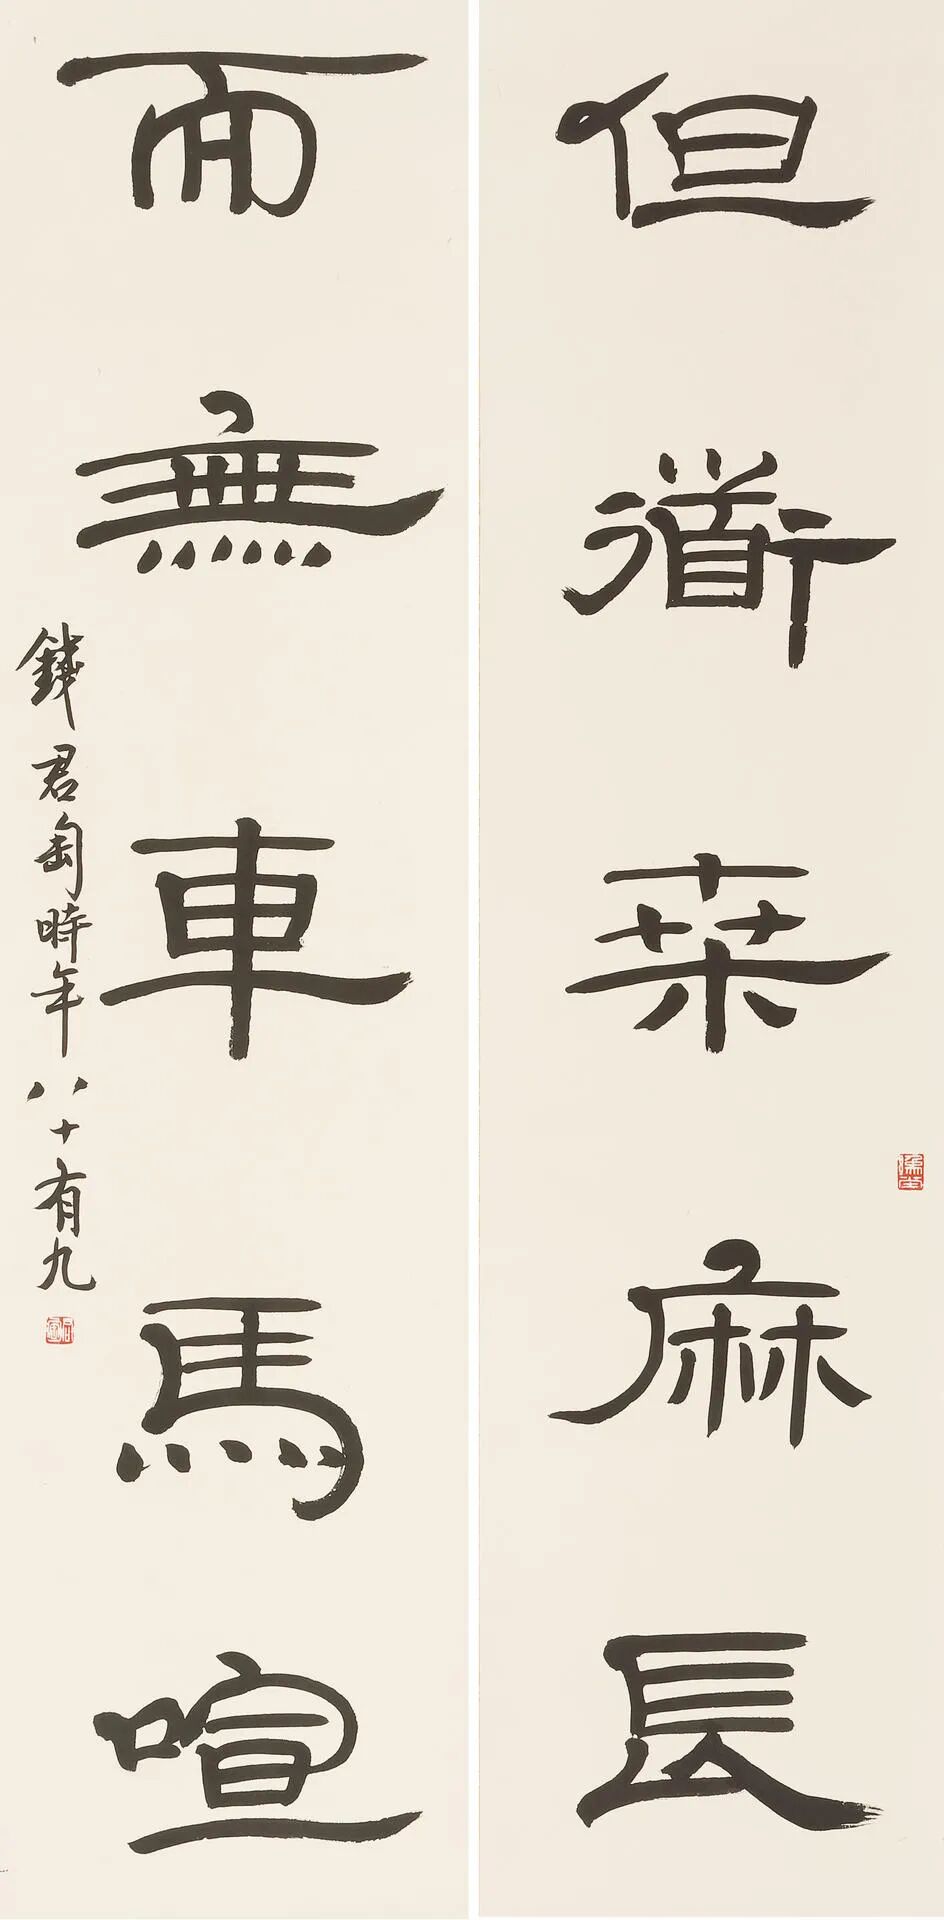 但衜桒麻長
而無車馬喧
錢君匋時年八十有九